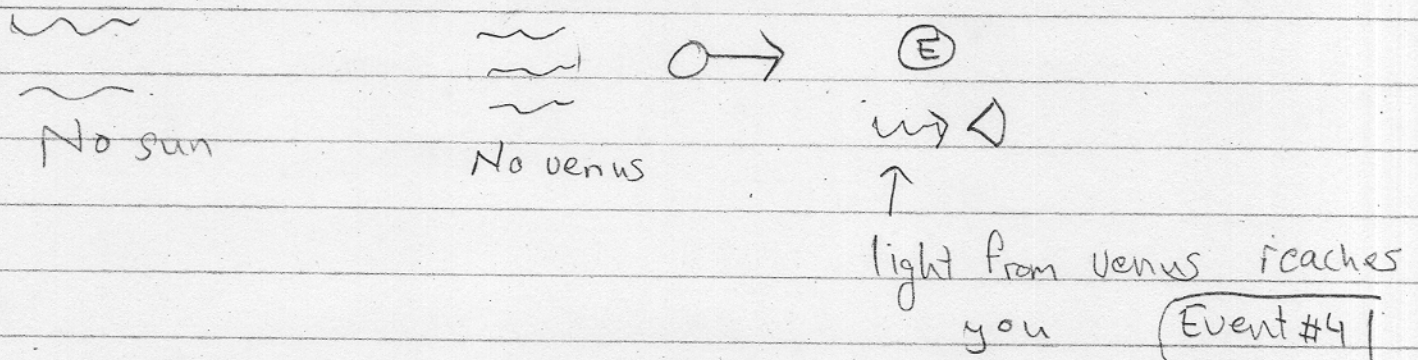 E
No sun
No venus
light from venus reaches
you
Event #4